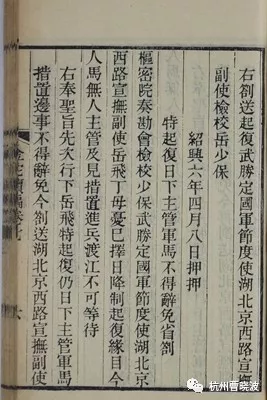 右劄送起復武勝定國軍節度使湖北京西路宣撫
副使檢校岳少保
紹興六年四月八日押押
特起復日下主管軍馬不得辭免省劄
樞密院奏勘會檢校少保武勝定國軍節度使湖北京
西路宣撫副使岳飛丁母憂已擇日降制起復緣目今
人馬無人主管及見措置進兵渡江不可等待
右奉聖旨先次行下岳飛特起復仍日下主管軍馬
措置邊事不得辭免今劄送湖北京西路宣撫副使
金佗續編卷七
六
杭州曹晓波